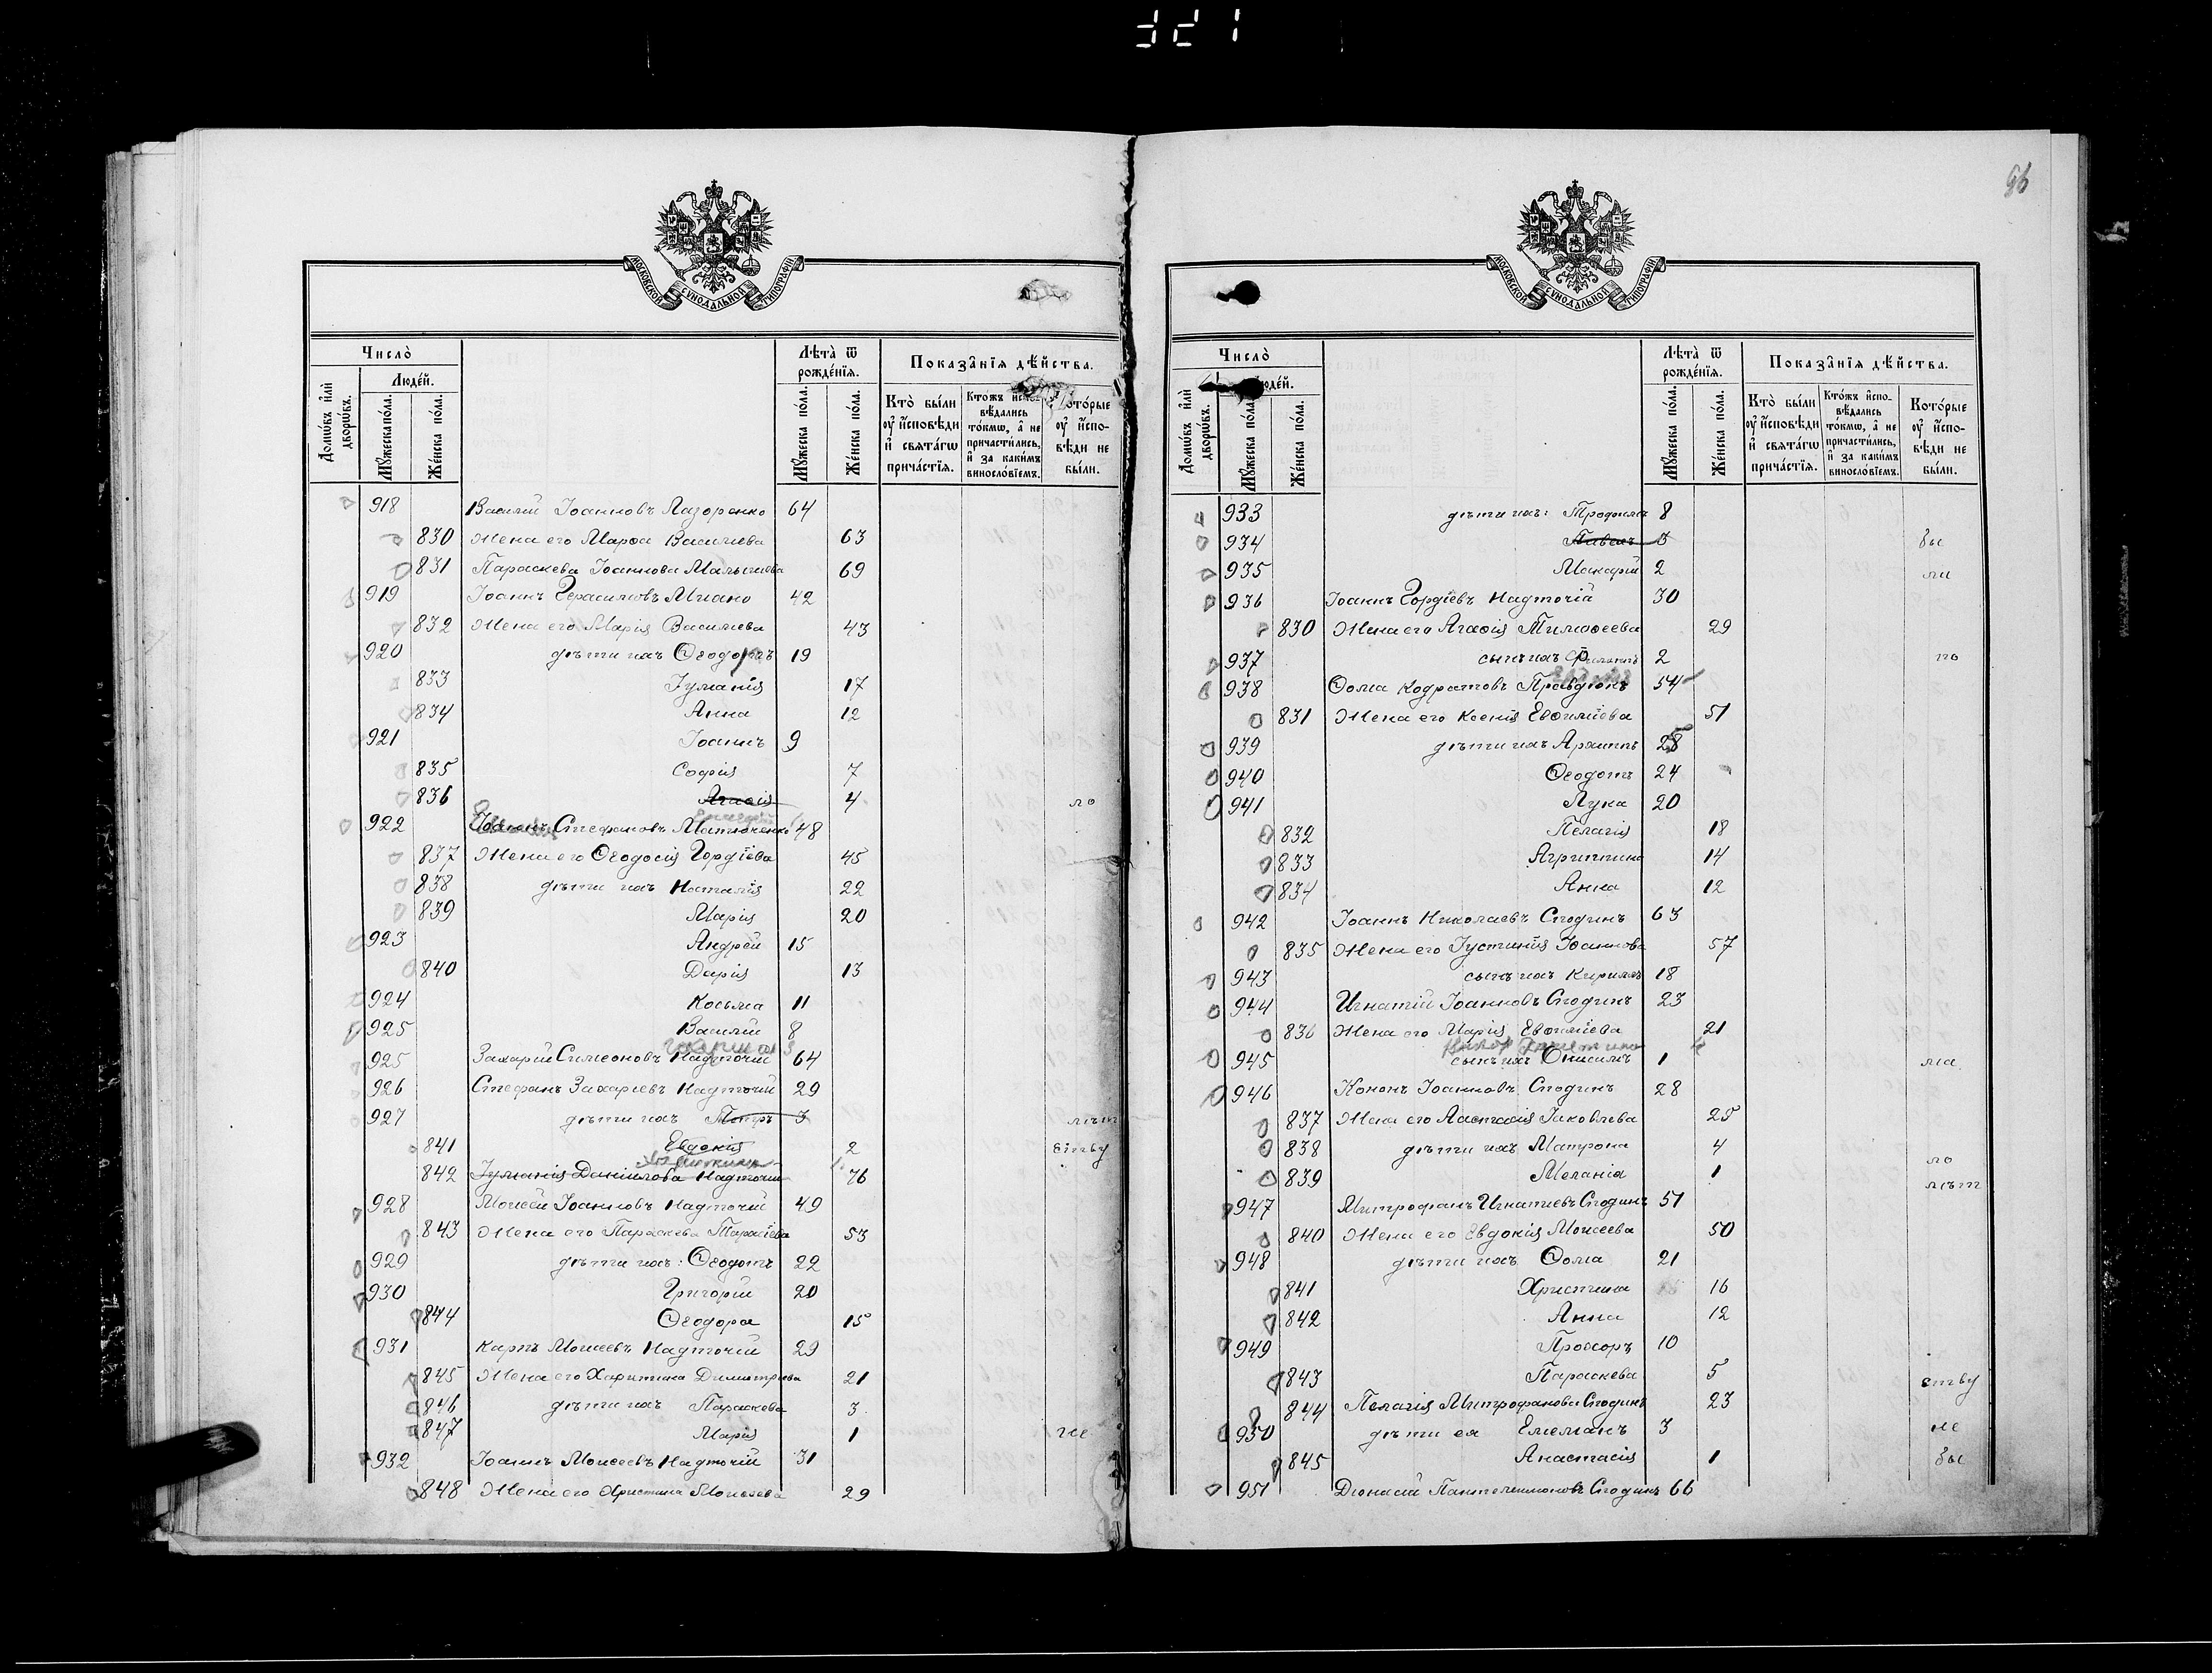 321
96
МОСКОВСКОЙ СѴНОДАЛЬНОЙ ТИПОГРАФІИ
Число̀
Людѐй.
Домѡ́въ и҆лѝ дворѡ́въ.
Мꙋ́жеска по́ла.
Же́нска по́ла.
Лѣ́та ѿ рожде́нїѧ.
Мꙋ́жеска по́ла.
Же́нска по́ла.
Показа̑нїѧ дѣ́йства.
Кто̀ бы́ли ᲂу҆ и҆сповѣ́ди и҆ свѧта́гѡ прича́стїѧ.
Кто́жъ и҆спо-
вѣ́дались то́кмѡ, а҆ не причасти́лись, и҆ за каки́мъ винослѡ́вїемъ.
Кото́рые ᲂу҆ и҆спо-
вѣ́ди не бы́ли.
918 Василій Іоанновъ Лазоренко 64
830 Жена его Марѳа Василиева 63
831 Параскева Іоаннова Малышева 69
919 Іоаннъ Герасимовъ 42
832 Жена его Марія Василиева 43
920 дѣти ихъ Ѳеодотъ 19
833 Іуліанія 17
834 Анна 12
921 Іоаннъ 9
835 Софія 7
836 Агаѳія 4 ло
922 Стефановъ Матюченко 48
837 Жена его Ѳеодосія Гордіева 45
838 дѣти ихъ Наталія 22
839 Марія 20
923 Андрей 15
840 Дарія 13
924 Косьма 11
925 Василій 8
925 Захарій Симеоновъ Надточій 64
926 Стефанъ Захаріевъ Надточій 29
927 дѣти ихъ Петръ 3 лѣт
841 Евдокія 2 ству
842 Іуліанія Даніилова Надточій 76
928 Моисей Іоанновъ Надточій 49
843 Жена его Параскева Тарасіева 53
929 дѣти ихъ: Ѳеодотъ 22
930 Григорій 20
844 Ѳеодора 15
931 Карпъ Моисеевъ Надточій 29
845 Жена его Харитина Димитріева 21
846 дѣти ихъ Параскева 3
847 Марія 1 не
932 Іоаннъ Моисеевъ Надточій 31
848 Жена его Христина Моисеева 29
МОСКОВСКОЙ СѴНОДАЛЬНОЙ ТИПОГРАФІИ
Число̀
Людѐй.
Домѡ́въ и҆лѝ дворѡ́въ.
Мꙋ́жеска по́ла.
Же́нска по́ла.
Лѣ́та ѿ рожде́нїѧ.
Мꙋ́жеска по́ла.
Же́нска по́ла.
Показа̑нїѧ дѣ́йства.
Кто̀ бы́ли ᲂу҆ и҆сповѣ́ди и҆ свѧта́гѡ прича́стїѧ.
Кто́жъ и҆спо-
вѣ́дались то́кмѡ, а҆ не причасти́лись, и҆ за каки́мъ винослѡ́вїемъ.
Кото́рые ᲂу҆ и҆спо-
вѣ́ди не бы́ли.
933 дѣти ихъ: Трофимъ 8
934 Павелъ 3 бы
935 Макарій 2 ли
936 Іоаннъ Гордіевъ Надточій 30
830 Жена его Агаѳія Тимоѳеева 29
937 сынъ ихъ Филиппъ 2 по
938 Ѳома Кодратовъ Правдюкъ 54
831 Жена его Ксенія Евѳиміева 51
939 дѣти ихъ Архиппъ 25
940 Ѳеодотъ 24
941 Лука 20
832 Пелагія 18
833 Агриппина 14
834 Анна 12
942 Іоаннъ Николаевъ Сподинъ 63
835 Жена его Іустинія Іоаннова 57
943 сынъ ихъ Кириллъ 18
944 Игнатій Іоанновъ Сподинъ 23
836 Жена его Марія Евѳиміева 21
945 сынъ ихъ Онисимъ 1 ма
946 Кононъ Іоанновъ Сподинъ 28
837 Жена его Анастасія Іаковлева 25
838 дѣти ихъ Матрона 4 ло
839 Меланія 1 лѣт
947 Митрофанъ Игнатиевъ Сподинъ 51
840 Жена его Евдокія Моисеева 50
948 дѣти ихъ Ѳома 21
841 Христина 16
842 Анна 12
949 Прохоръ 10
843 Параскева 5 ству
844 Пелагія Митрофанова Сподинъ 23
950 дѣти ея Емеліанъ 3 не
845 Анастасія 1 бы
951 Діонисій Пантелеимоновъ Сподинъ 66